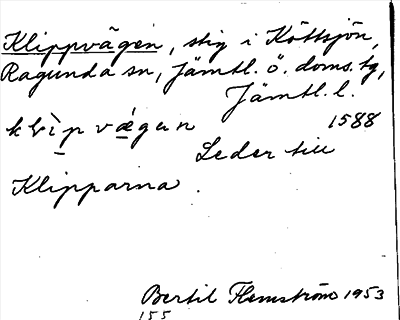 Klippvägen, stig i Köttsjön,
Ragunda sn, Jämtl. ö. doms. tg,
Jämtl. l.
klìp vǽgen 1588
Leder till
Klipparna.
Bertil Flemström 1953
155